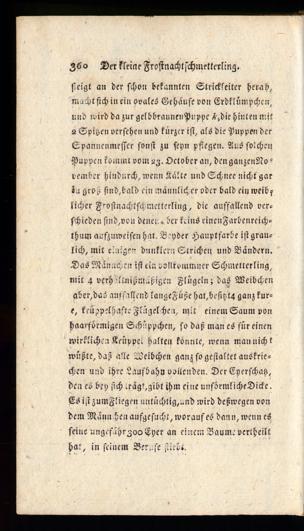 360 Der kleine Frostnachtschmetterling.
steigt an der schon bekannten Strickleiter herab,
macht sich in ein ovales Gehäuse von Erdklümpchen,
und wird da zur gelbbraunen Puppe, die hinten mit
2 Spizen versehen und kürzer ist, als die Puppen der
Spannenmesser sonst zu seyn pflegen. Aus solchen
Puppen kommt vom 23. October an, den ganzen No-
vember hindurch, wenn Kälte und Schnee nicht gar
zu groß sind, bald ein männlicher oder bald ein weib-
licher Frostnachtschmetterling, die auffallend ver-
schieden sind, von denen aber keins einen Farbenreich-
thum aufzuweisen hat. Beyder Hauptfarbe ist grau-
lich, mit einigen dunklern Strichen und Bändern.
Das Männchen ist ein vollkommner Schmetterling,
mit 4 verhältnißmäßigen Flügeln; das Weibchen
aber, das auffallend lange Füße hat, besitzt 4 ganz kur-
ze, krüppelhafte Flügelchen, mit einem Saum von
haarförmigen Schüppchen, so daß man es für einen
wirklichen Krüppel halten könnte, wenn man nicht
wüßte, daß alle Weibchen ganz so gestaltet auskrie-
chen und ihre Laufbahn vollenden. Der Eyerschatz,
den es bey sich trägt, gibt ihm eine unförmliche Dicke.
Es ist zum Fliegen untüchtig, und wird deßwegen von
dem Männchen aufgesucht, worauf es dann, wenn es
seine ungefähr 300 Eyer an einem Baume vertheilt
hat, in seinem Berufe stirbt.